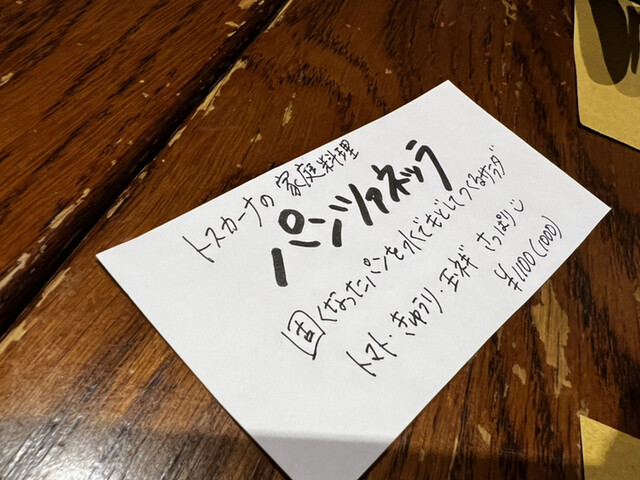 トスカーナの家庭料理
パンツァネッラ
固くなったパンを水でもどしてつくるサラダ
トマト・きゅうり・玉ネギ さっぱり
¥1100(1000)